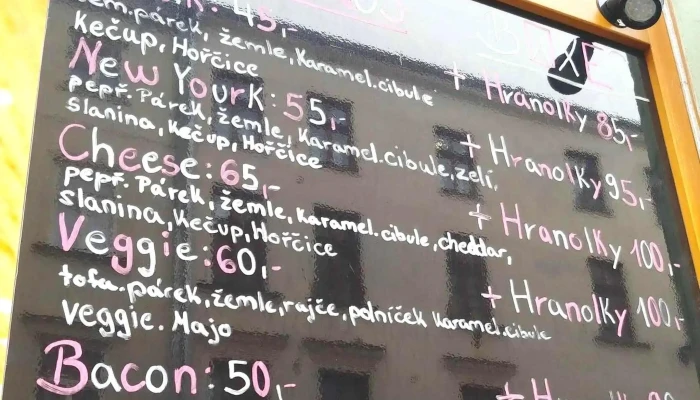 45,-
žemle, Karamel.cibule
Kečup, Hořčice
+ Hranolky 85,-
New Yourk: 55,-
pepř. Párek, žemle, Karamel.cibule, zelí,
slanina, Kečup, Hořčice
+ Hranolky 95,-
Cheese: 65,-
pepř. Párek, žemle, Karamel.cibule, cheddar,
slanina, Kečup, Hořčice
+ Hranolky 100,-
Veggie: 60,-
tofu. párek, žemle, rajče, polníček Karamel.cibule
Veggie. Majo
+ Hranolky 100,-
Bacon: 50,-